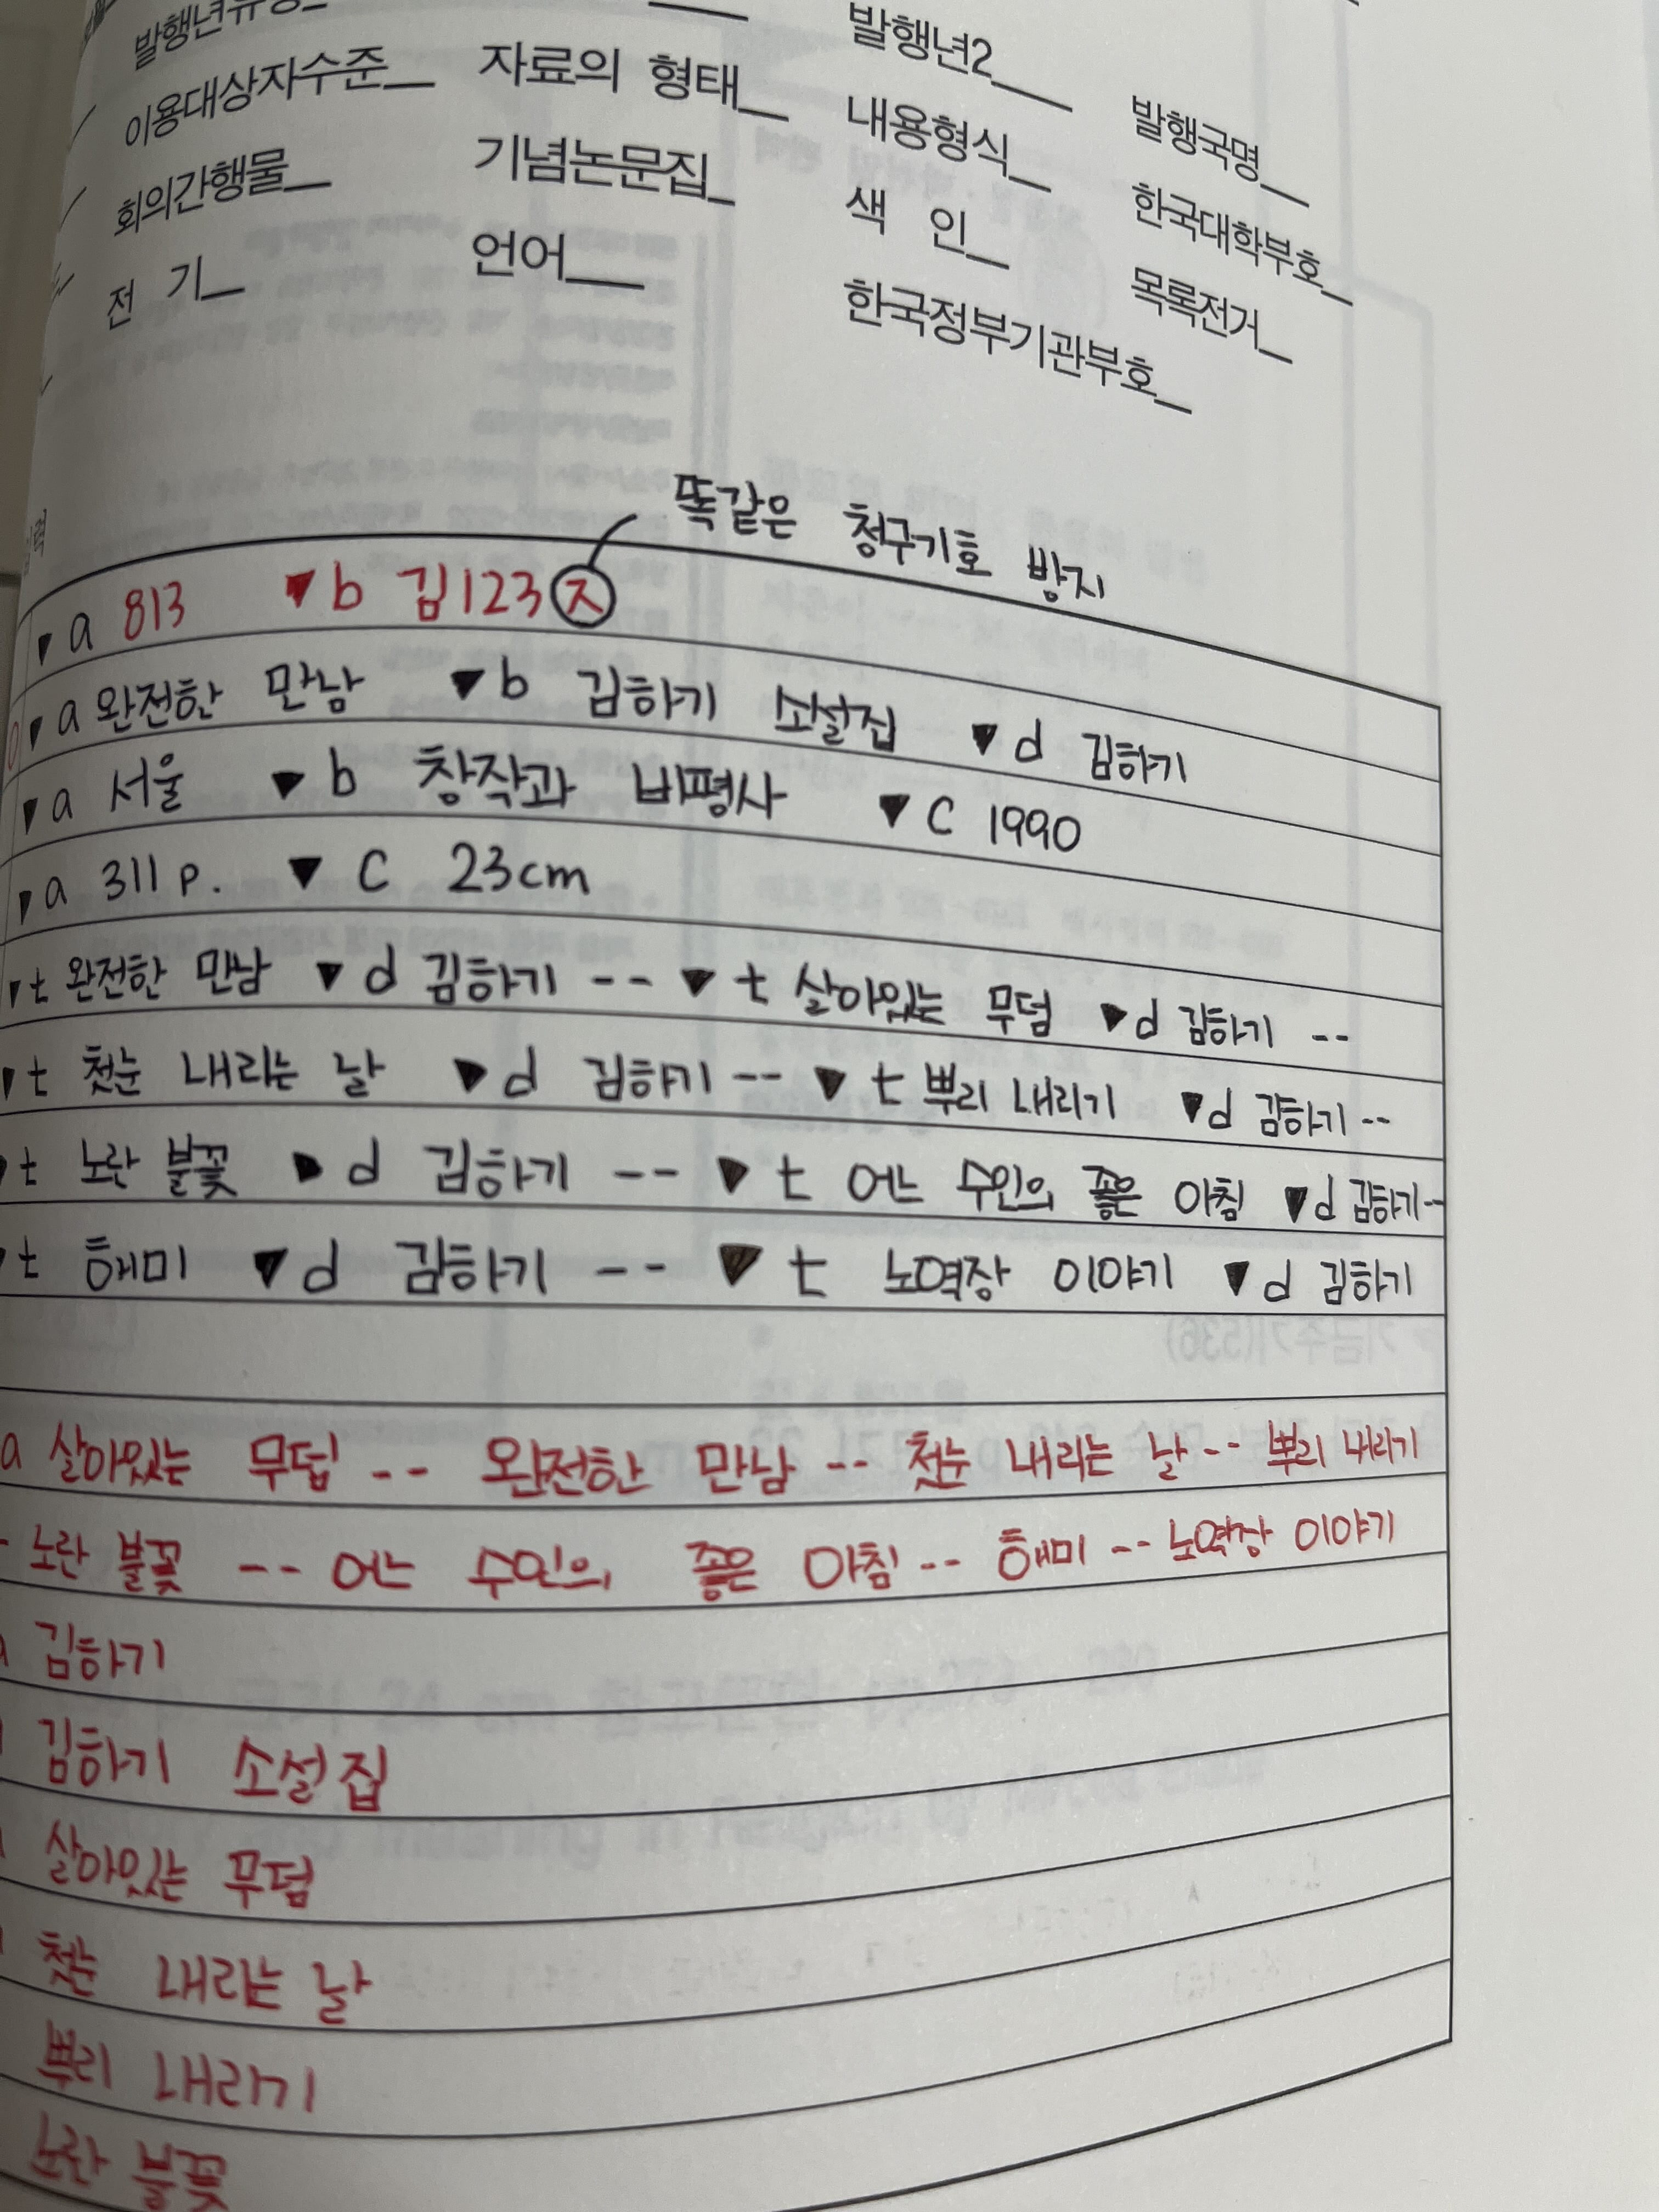 발행년유형_
이용대상자수준_ 자료의 형태_ 발행년2_ 발행국명_
회의간행물_ 기념논문집_ 내용형식_ 한국대학부호_
전 기_ 언어_ 색 인_ 목록전거_
한국정부기관부호_
똑같은 청구기호 방지
▼a 813 ▼b 김123ㅈ
▼a 완전한 만남 ▼b 김하기 소설집 ▼d 김하기
▼a 서울 ▼b 창작과 비평사 ▼c 1990
▼a 311 p. ▼c 23cm
▼t 완전한 만남 ▼d 김하기 -- ▼t 살아있는 무덤 ▼d 김하기 --
▼t 첫눈 내리는 날 ▼d 김하기 -- ▼t 뿌리 내리기 ▼d 김하기 --
▼t 노란 불꽃 ▼d 김하기 -- ▼t 어느 수인의 좋은 아침 ▼d 김하기--
▼t 해미 ▼d 김하기 -- ▼t 노역장 이야기 ▼d 김하기
a 살아있는 무덤 -- 완전한 만남 -- 첫눈 내리는 날 -- 뿌리 내리기
- 노란 불꽃 -- 어느 수인의 좋은 아침 -- 해미 -- 노역장 이야기
김하기
김하기 소설집
살아있는 무덤
첫눈 내리는 날
뿌리 내리기
노란 불꽃